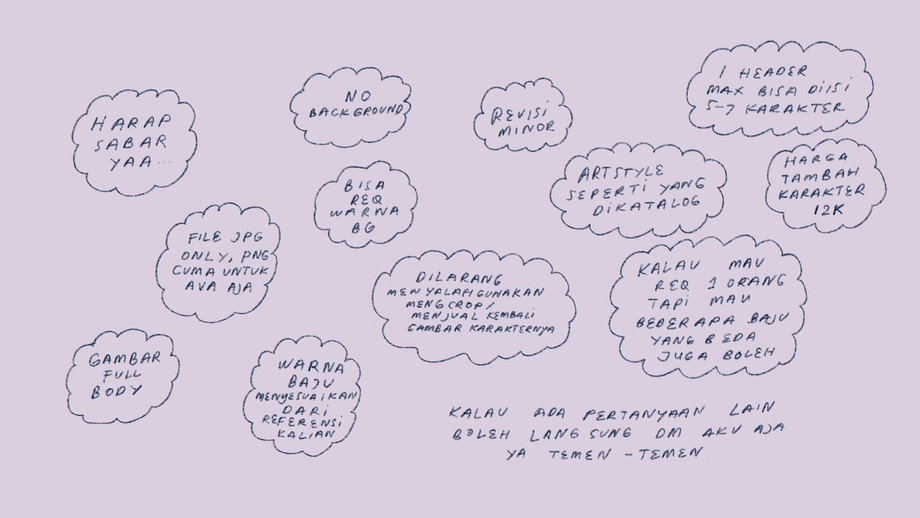 HARAP
SABAR
YAA...
NO
BACKGROUND
REVISI
MINOR
1 HEADER
MAX BISA DIISI
5-7 KARAKTER
BISA
REQ
WARNA
BG
ARTSTYLE
SEPERTI YANG
DIKATALOG
HARGA
TAMBAH
KARAKTER
12K
FILE JPG
ONLY, PNG
CUMA UNTUK
AVA AJA
DILARANG
MENYALAHGUNAKAN
MENGCROP/
MENJUAL KEMBALI
GAMBAR KARAKTERNYA
KALAU MAU
REQ 1 ORANG
TAPI MAU
BEBERAPA BAJU
YANG BEDA
JUGA BOLEH
GAMBAR
FULL
BODY
WARNA
BAJU
MENYESUAIKAN
DARI
REFERENSI
KALIAN
KALAU ADA PERTANYAAN LAIN
BOLEH LANGSUNG DM AKU AJA
YA TEMEN-TEMEN